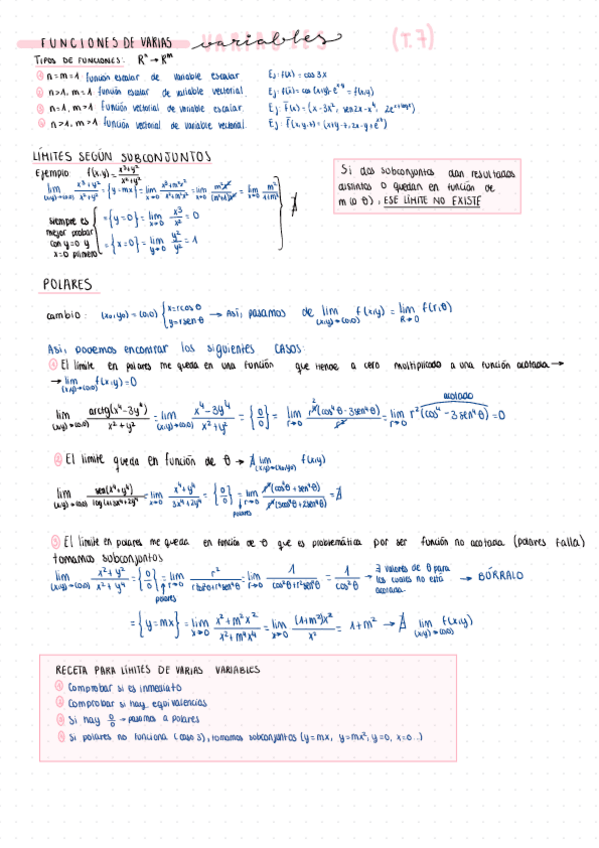 FUNCIONES DE VARIAS variables (T.7)
TIPOS DE FUNCIONES: Rⁿ → Rᵐ
① n=m=1 función escalar de variable escalar Ej: f(x) = cos 3x
② n>1, m=1 función escalar de variable vectorial. Ej: f(x̄) = cos(x+y)·eˣʸ = f(x,y)
③ n=1, m>1 función vectorial de variable escalar.
④ n>1, m>1 función vectorial de variable vectorial.
LÍMITES SEGÚN SUBCONJUNTOS
Ejemplo f(x,y) = (x³+y²)/(x²+y²)
Si dos subconjuntos dan resultados
distintos o quedan en función de
m (o θ), ESE LÍMITE NO EXISTE
siempre es
mejor probar
con y=0 y
x=0 primero
= {y=0} = lim x→0 x³/x² = 0
= {x=0} = lim y→0 y²/y² = 1
∄
POLARES
cambio: (x₀,y₀) = (0,0) { x=r cos θ y=r sen θ → Así, pasamos de lim (x,y)→(0,0) f(x,y) = lim R→0 f(r,θ)
Así, podemos encontrar los siguientes CASOS:
① El límite en polares me queda en una función que tiende a cero multiplicado a una función acotada →
→ lim (x,y)→(0,0) f(x,y) = 0
acotado
lim (x,y)→(0,0) arctg(x⁴-3y⁴)/(x²+y²) = lim (x,y)→(0,0) (x⁴-3y⁴)/(x²+y²) = {0/0} = lim r→0 r⁴(cos⁴θ-3sen⁴θ)/r² = lim r→0 r²(cos⁴θ-3sen⁴θ) = 0
② El límite queda en función de θ → ∄ lim (x,y)→(x₀,y₀) f(x,y)
= lim x→0 (x⁴+y⁴)/(3x⁴+2y⁴) = {0/0} = lim r→0 r⁴(cos⁴θ+sen⁴θ)/r⁴(3cos⁴θ+2sen⁴θ) = ∄
polares
③ El límite en polares me queda en función de θ que es problemática por ser función no acotada (polares falla)
tomamos subconjuntos
lim (x,y)→(0,0) (x²+y²)/(x²+y⁴) = {0/0} = lim r→0 r²/(r²cos²θ+r⁴sen⁴θ) = lim r→0 1/(cos²θ+r²sen⁴θ) = 1/cos²θ → ∃ valores de θ para los cuales no está acotada. → BÓRRALO
polares
= {y=mx} = lim x→0 (x²+m²x²)/(x²+m⁴x⁴) = lim x→0 (1+m²)x²/x² = 1+m² → ∄ lim (x,y)→(0,0) f(x,y)
RECETA PARA LÍMITES DE VARIAS VARIABLES
① Comprobar si es inmediato
② Comprobar si hay equivalencias
③ Si hay 0/0 → pasamos a polares
④ Si polares no funciona (caso 3), tomamos subconjuntos (y=mx, y=mx², y=0, x=0...)